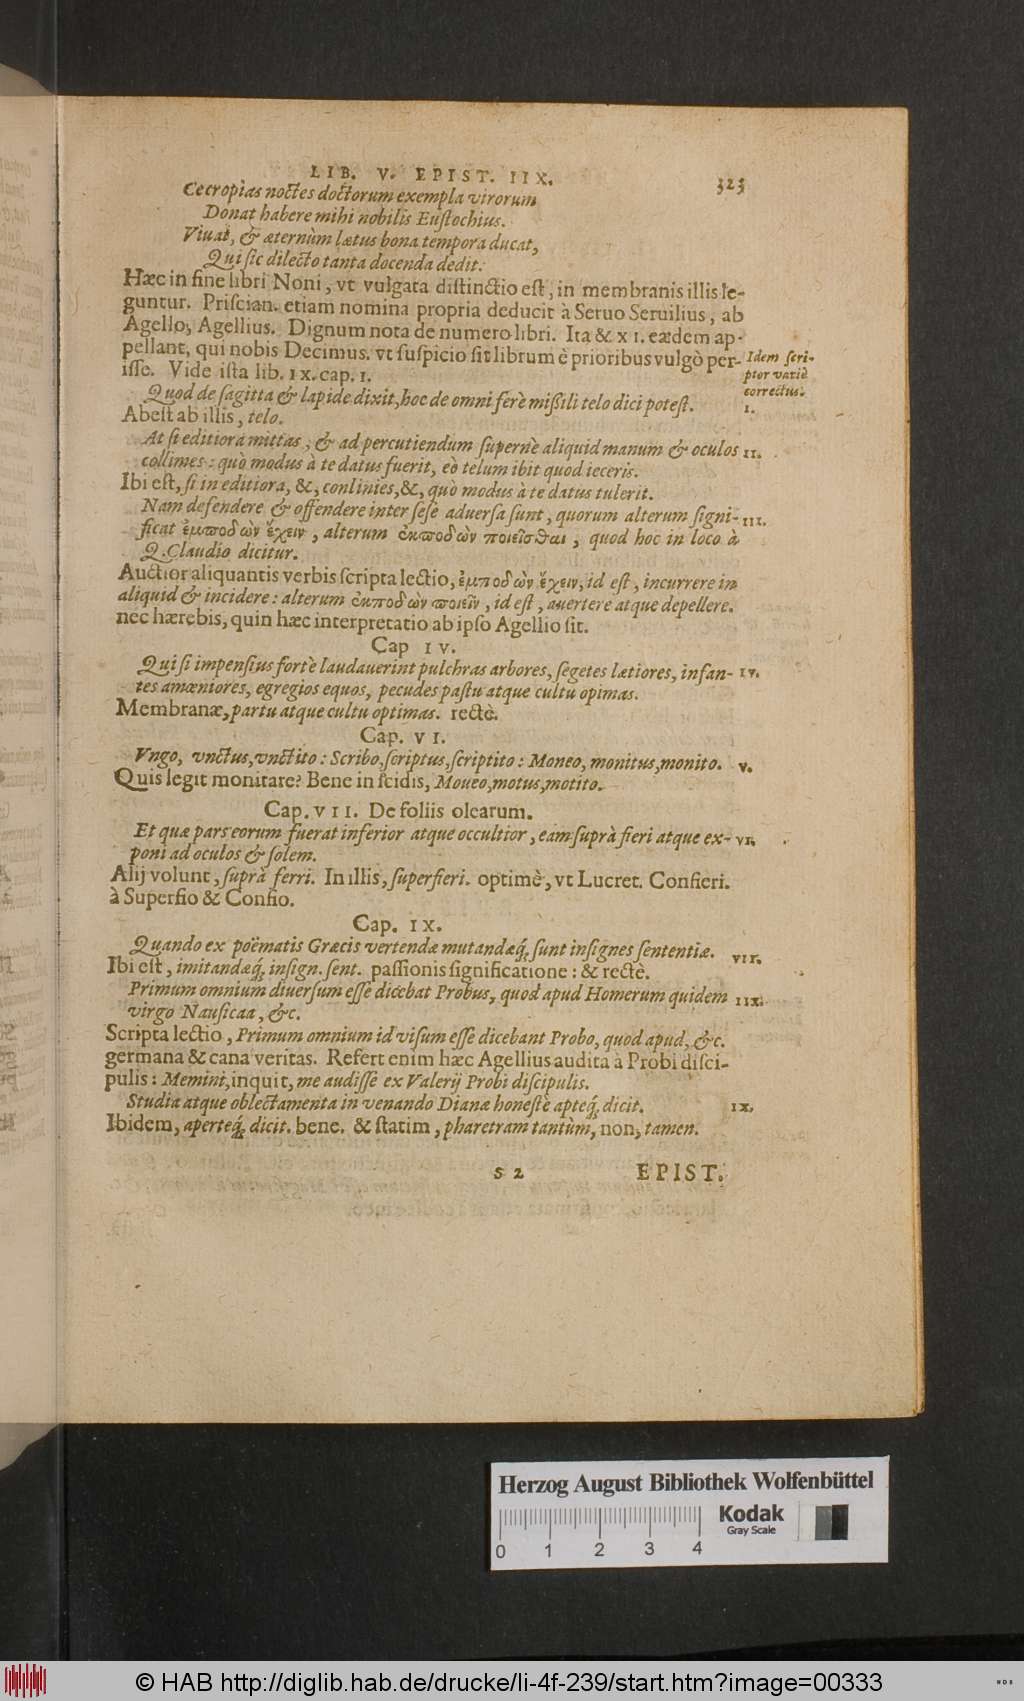 LIB. V. EPIST. IIX. 325
Cecropias noctes doctorum exempla virorum
Donat habere mihi nobilis Eustochius.
Viuat, & æternùm lætus bona tempora ducat,
Qui sic dilecto tanta docenda dedit.
Hæc in fine libri Noni, vt vulgata distinctio est, in membranis illis le-
guntur. Priscian. etiam nomina propria deducit à Seruo Seruilius, ab
Agello, Agellius. Dignum nota de numero libri. Ita & XI. eædem ap-
pellant, qui nobis Decimus. vt suspicio sit librum è prioribus vulgò per-
isse. Vide ista lib. IX. cap. I.
Idem scri-
ptor variè
correctus.
Quod de sagitta & lapide dixit, hoc de omni ferè missili telo dici potest. I.
Abest ab illis, telo.
At si editiora mittas, & ad percutiendum supernè aliquid manum & oculos II.
collimes: quò modus à te datus fuerit, eò telum ibit quod ieceris.
Ibi est, si in editiora, &, conlinies, &, quò modus à te datus tulerit.
Nam defendere & offendere inter sese aduersa sunt, quorum alterum signi- III.
ficat ἐμποδὼν ἔχειν, alterum ἐκποδὼν ποιεῖσθαι, quod hoc in loco à
Q. Claudio dicitur.
Auctior aliquantis verbis scripta lectio, ἐμποδὼν ἔχειν, id est, incurrere in
aliquid & incidere: alterum ἐκποδὼν ποιεῖν, id est, auertere atque depellere.
nec hærebis, quin hæc interpretatio ab ipso Agellio sit.
Cap IV.
Qui si impensius fortè laudauerint pulchras arbores, segetes lætiores, infan- IV.
tes amœniores, egregios equos, pecudes pastu atque cultu opimas.
Membranæ, partu atque cultu optimas. rectè.
Cap. VI.
Vngo, vnctus, vnctito: Scribo, scriptus, scriptito: Moneo, monitus, monito. V.
Quis legit monitare? Bene in scidis, Moueo, motus, motito.
Cap. VII. De foliis olearum.
Et quæ pars eorum fuerat inferior atque occultior, eam suprà fieri atque ex- VI.
poni ad oculos & solem.
Alij volunt, suprà ferri. In illis, superfieri. optimè, vt Lucret. Confieri.
à Superfio & Confio.
Cap. IX.
Quando ex poëmatis Græcis vertendæ mutandæq́; sunt insignes sententiæ. VII.
Ibi est, imitandæq́; insign. sent. passionis significatione: & rectè.
Primum omnium diuersum esse dicebat Probus, quod apud Homerum quidem IIX.
virgo Nausicaa, &c.
Scripta lectio, Primum omnium id visum esse dicebant Probo, quod apud, &c.
germana & cana veritas. Refert enim hæc Agellius audita à Probi disci-
pulis: Memini, inquit, me audisse ex Valerij Probi discipulis.
Studia atque oblectamenta in venando Dianæ honestè apteq́; dicit. IX.
Ibidem, aperteq́; dicit. bene. & statim, pharetram tantùm, non, tamen.
S 2 EPIST.
Herzog August Bibliothek Wolfenbüttel
0 1 2 3 4
Kodak
Gray Scale
© HAB http://diglib.hab.de/drucke/li-4f-239/start.htm?image=00333